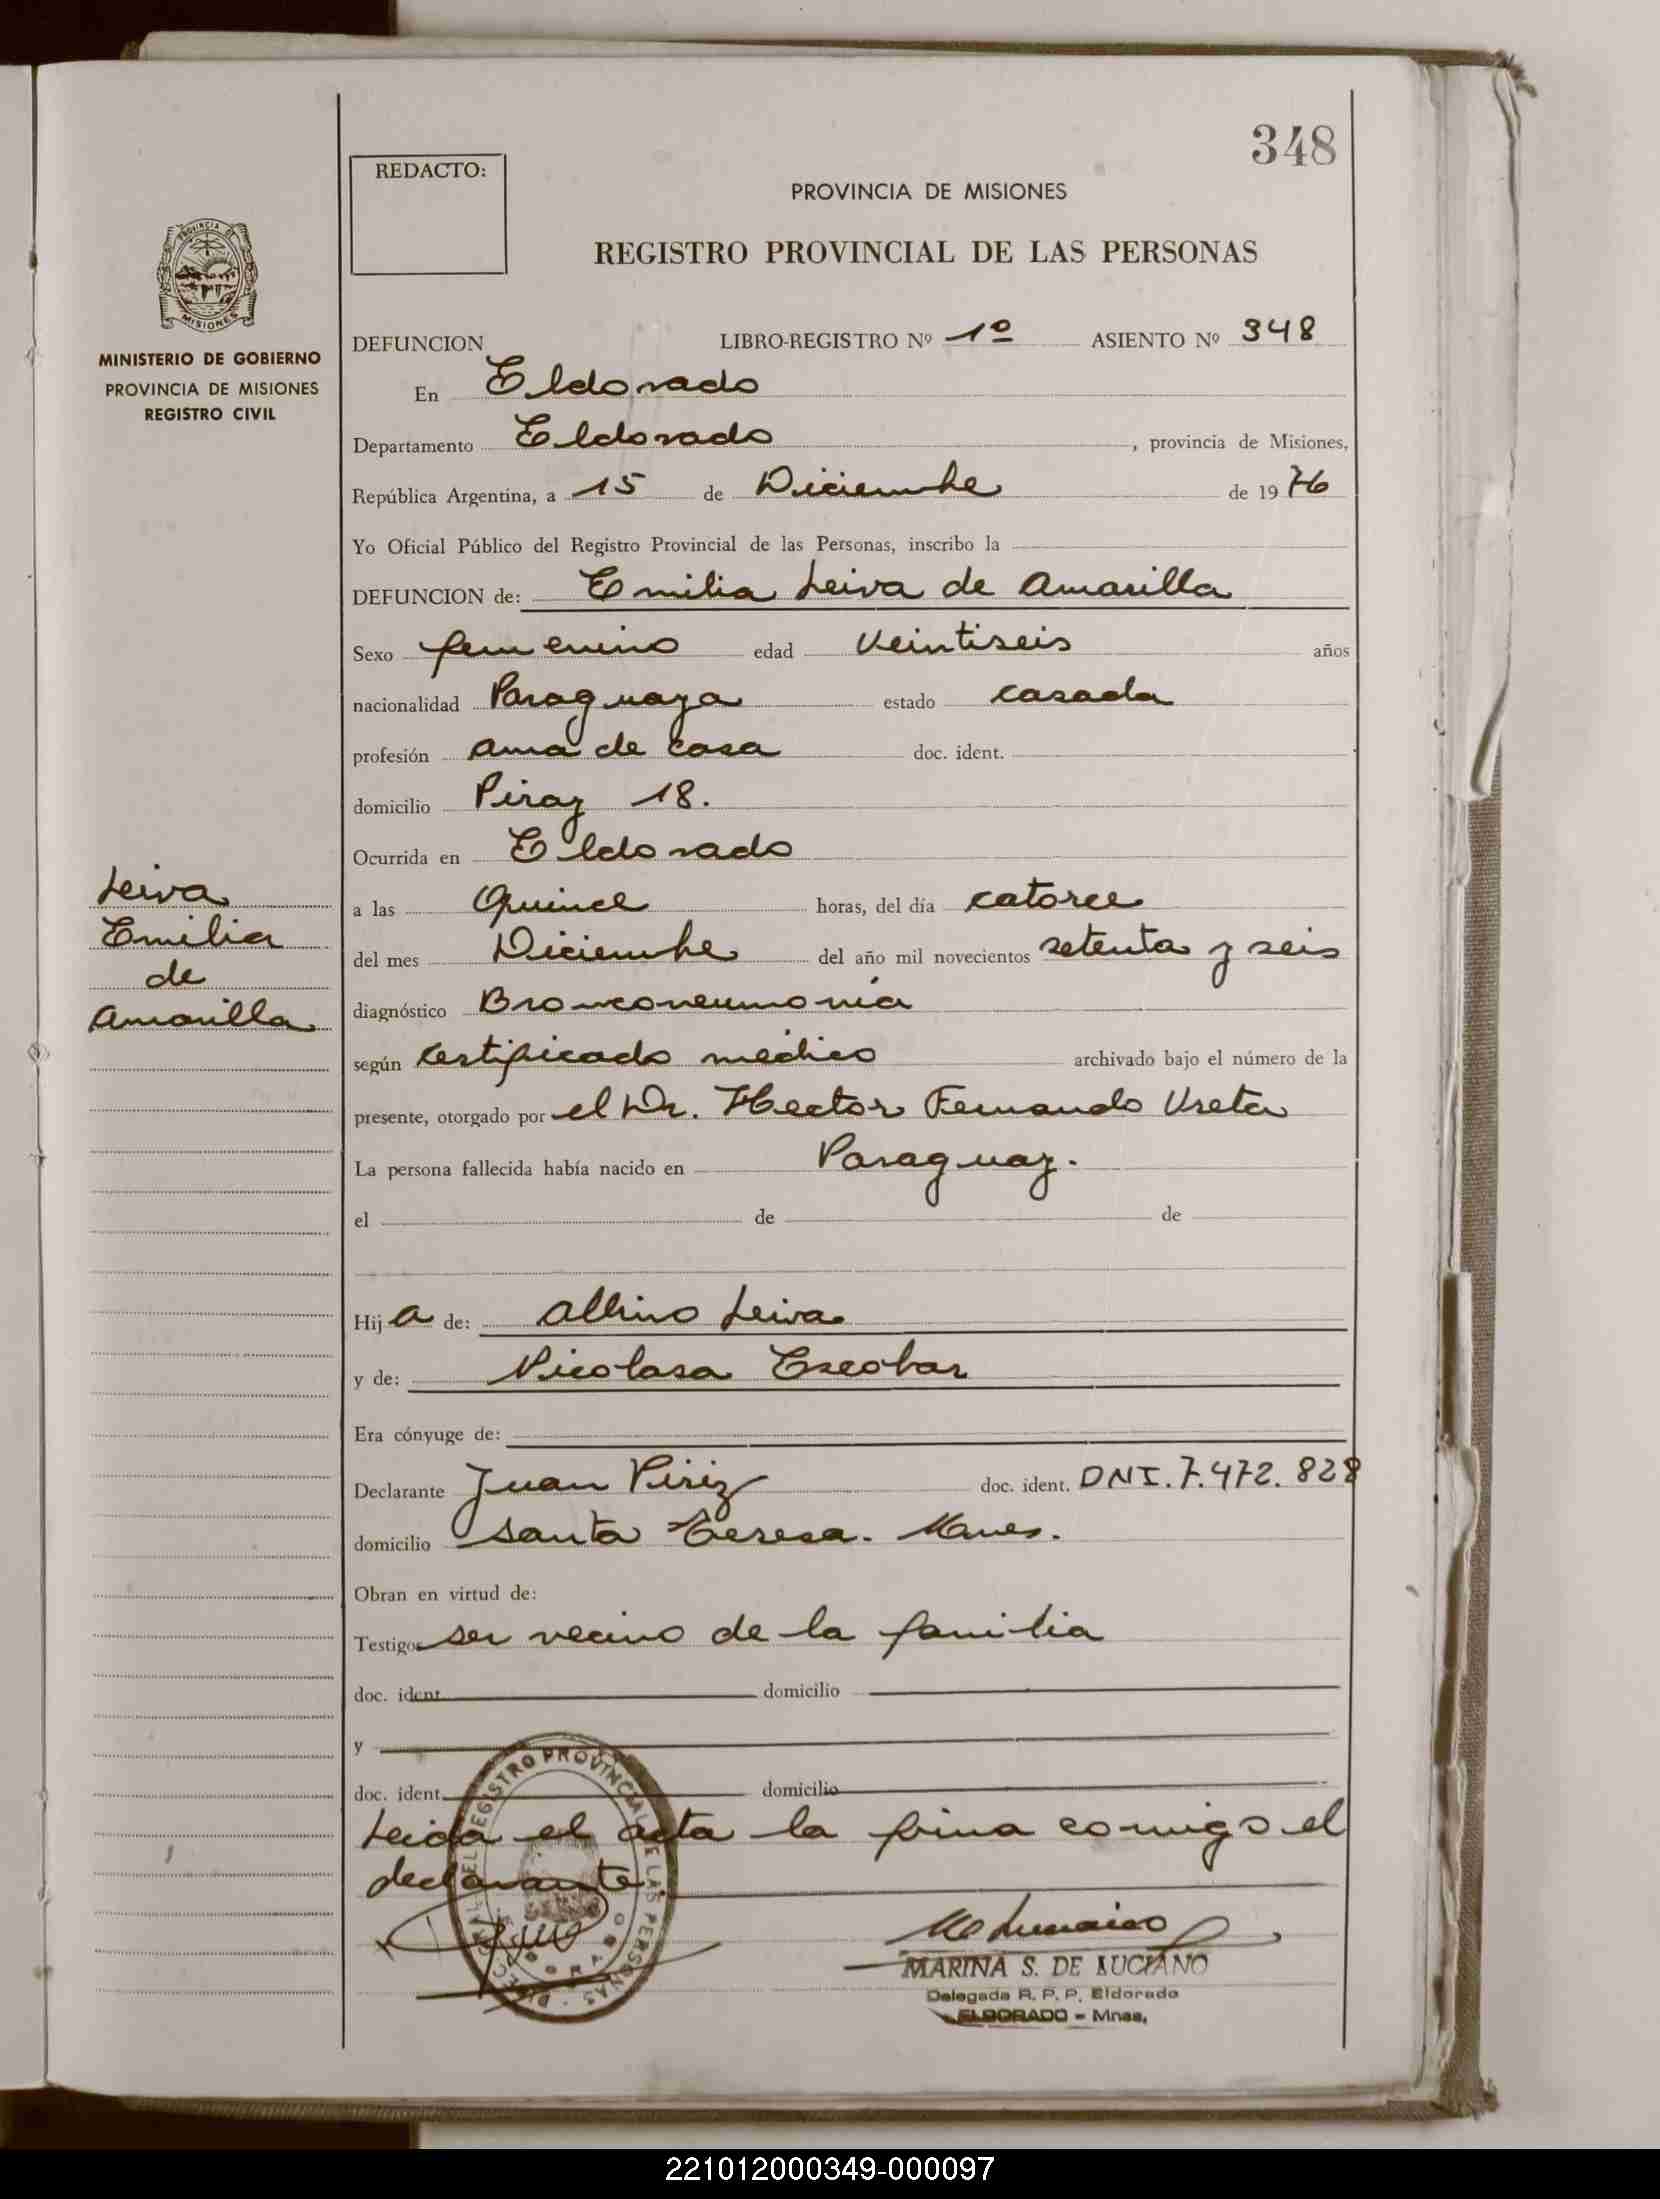 348
REDACTO:
PROVINCIA DE MISIONES
REGISTRO PROVINCIAL DE LAS PERSONAS
PROVINCIA DE
MISIONES
MINISTERIO DE GOBIERNO
PROVINCIA DE MISIONES
REGISTRO CIVIL
DEFUNCION LIBRO-REGISTRO Nº 1º ASIENTO Nº 348
En Eldorado
Departamento Eldorado, provincia de Misiones,
República Argentina, a 15 de Diciembre de 1976
Yo Oficial Público del Registro Provincial de las Personas, inscribo la
DEFUNCION de: Emilia Leiva de Amarilla
Sexo femenino edad Veintiseis años
nacionalidad Paraguaya estado casada
profesión ama de casa doc. ident.
domicilio Piray 18.
Ocurrida en Eldorado
Leiva
Emilia
de
Amarilla
a las Quince horas, del día catorce
del mes Diciembre del año mil novecientos setenta y seis
diagnóstico Bronconeumonia
según certificado médico archivado bajo el número de la
presente, otorgado por el Dr. Hector Fernando Ureta
La persona fallecida había nacido en Paraguay.
el de de
Hija de: Albino Leiva
y de: Nicolasa Escobar
Era cónyuge de:
Declarante Juan Piriz doc. ident. DNI. 7.472.828
domicilio Santa Teresa. Mnes.
Obran en virtud de:
Testigos ser vecino de la familia
doc. ident. domicilio
y
doc. ident. domicilio
Leida el acta la firma comigo el
declarante.
REGISTRO PROVINCIAL DE LAS PERSONAS
MARINA S. DE LUCIANO
Delegada R. P. P. Eldorado
ELDORADO - Mnes,
221012000349-000097